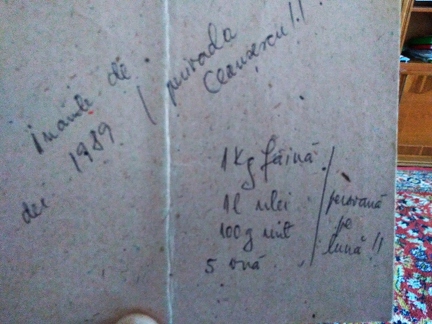 Inainte de
1989
perioada
Ceaușescu!!
1 Kg făină.
1l ulei
100g unt
5 ouă
persoană
pe
lună!!